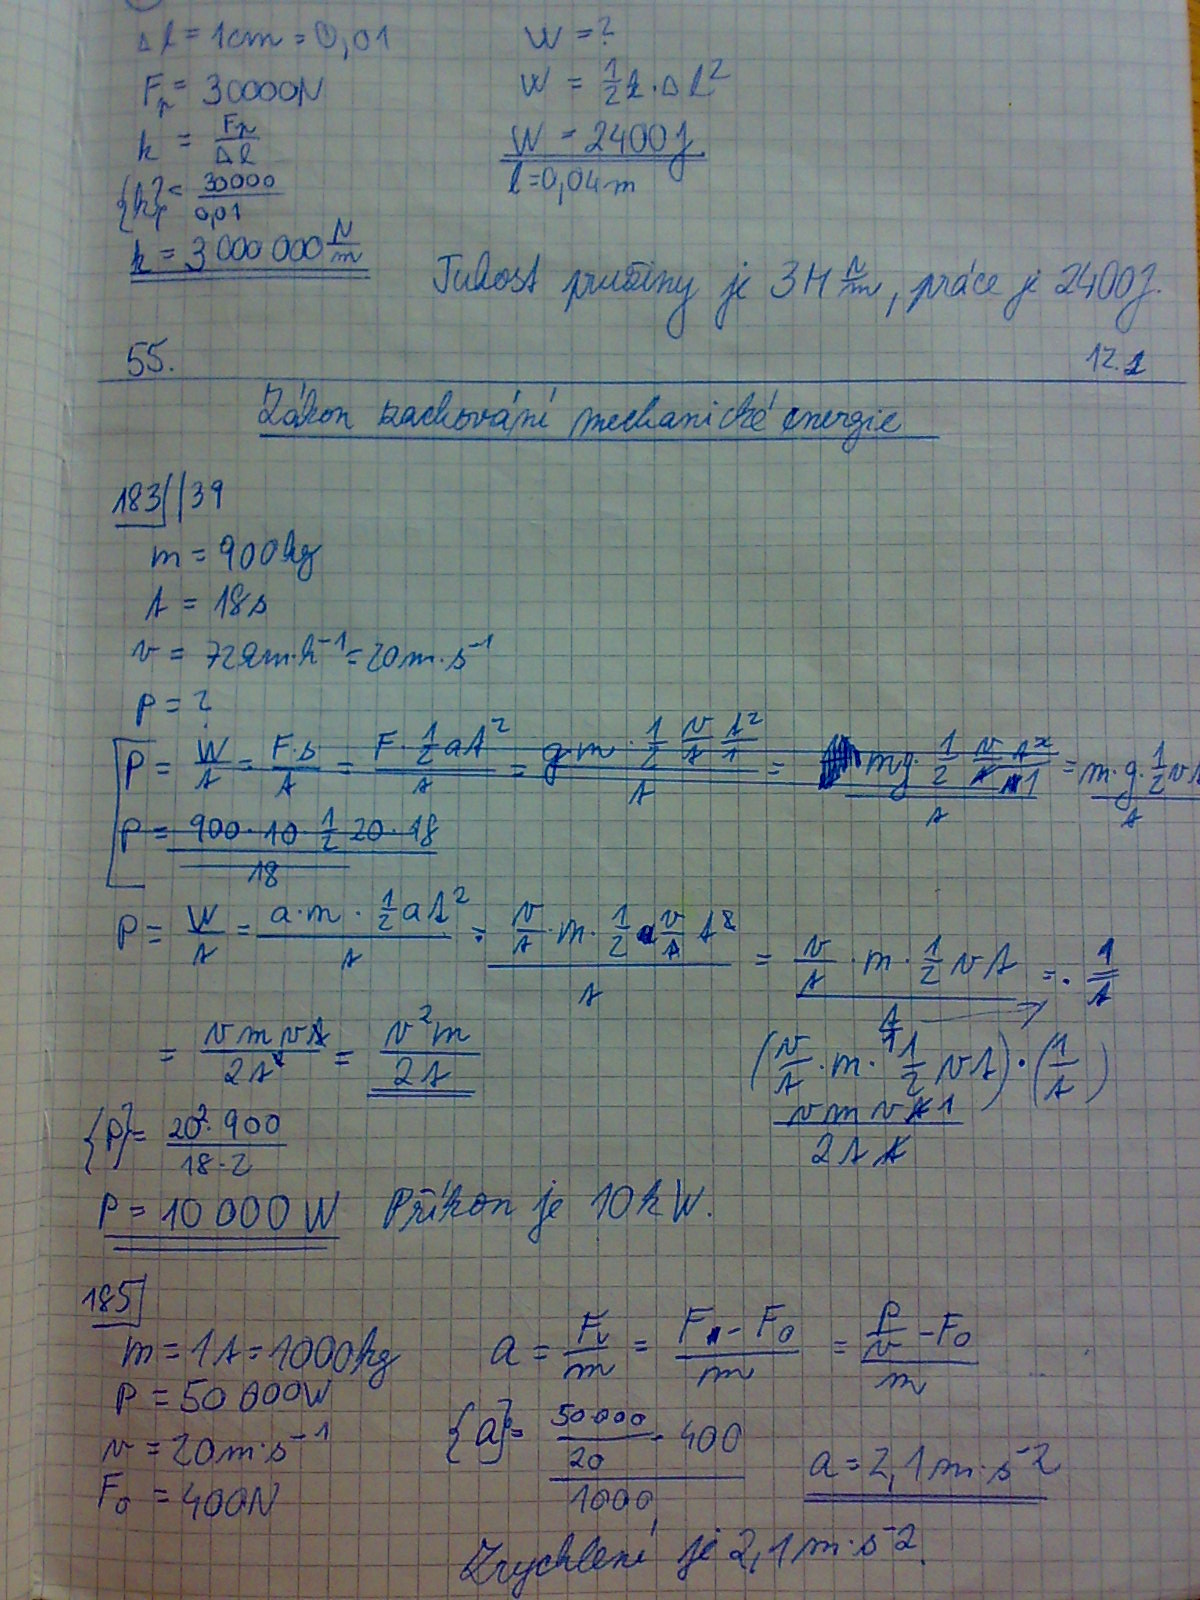 Δl = 1cm = 0,01
F_p = 30000N
k = F_p/Δl
{k} = 30000/0,01
k = 3 000 000 N/m
W = ?
W = 1/2 k · Δl²
W = 2400J
l = 0,04m
Tuhost pružiny je 3M N/m, práce je 2400J.
55. 12.1
Zákon zachování mechanické energie
183 // 39
m = 900kg
t = 18s
v = 72km·h⁻¹ = 20m·s⁻¹
P = ?
P = W/t = F·s/t = F·1/2at²/t = g·m·1/2 v/t t²/1/t = mg·1/2 v/t t²/1/t = m·g·1/2vt/t
P = 900·10·1/2 20·18/18
P = W/t = a·m·1/2at²/t = v/t·m·1/2 v/t t²/t = v/t·m·1/2vt/t = · 1/t
= vmvt/2t² = v²m/2t
(v/t·m·1/2vt)·(1/t)
vmvt1/2tt
{P} = 20²·900/18·2
P = 10 000W Příkon je 10kW.
185
m = 1t = 1000kg
P = 50 000W
v = 20m·s⁻¹
F₀ = 400N
a = F_v/m = F - F₀/m = P/v - F₀/m
{a} = 50 000/20 - 400/1000
a = 2,1m·s⁻²
Zrychlení je 2,1m·s⁻².